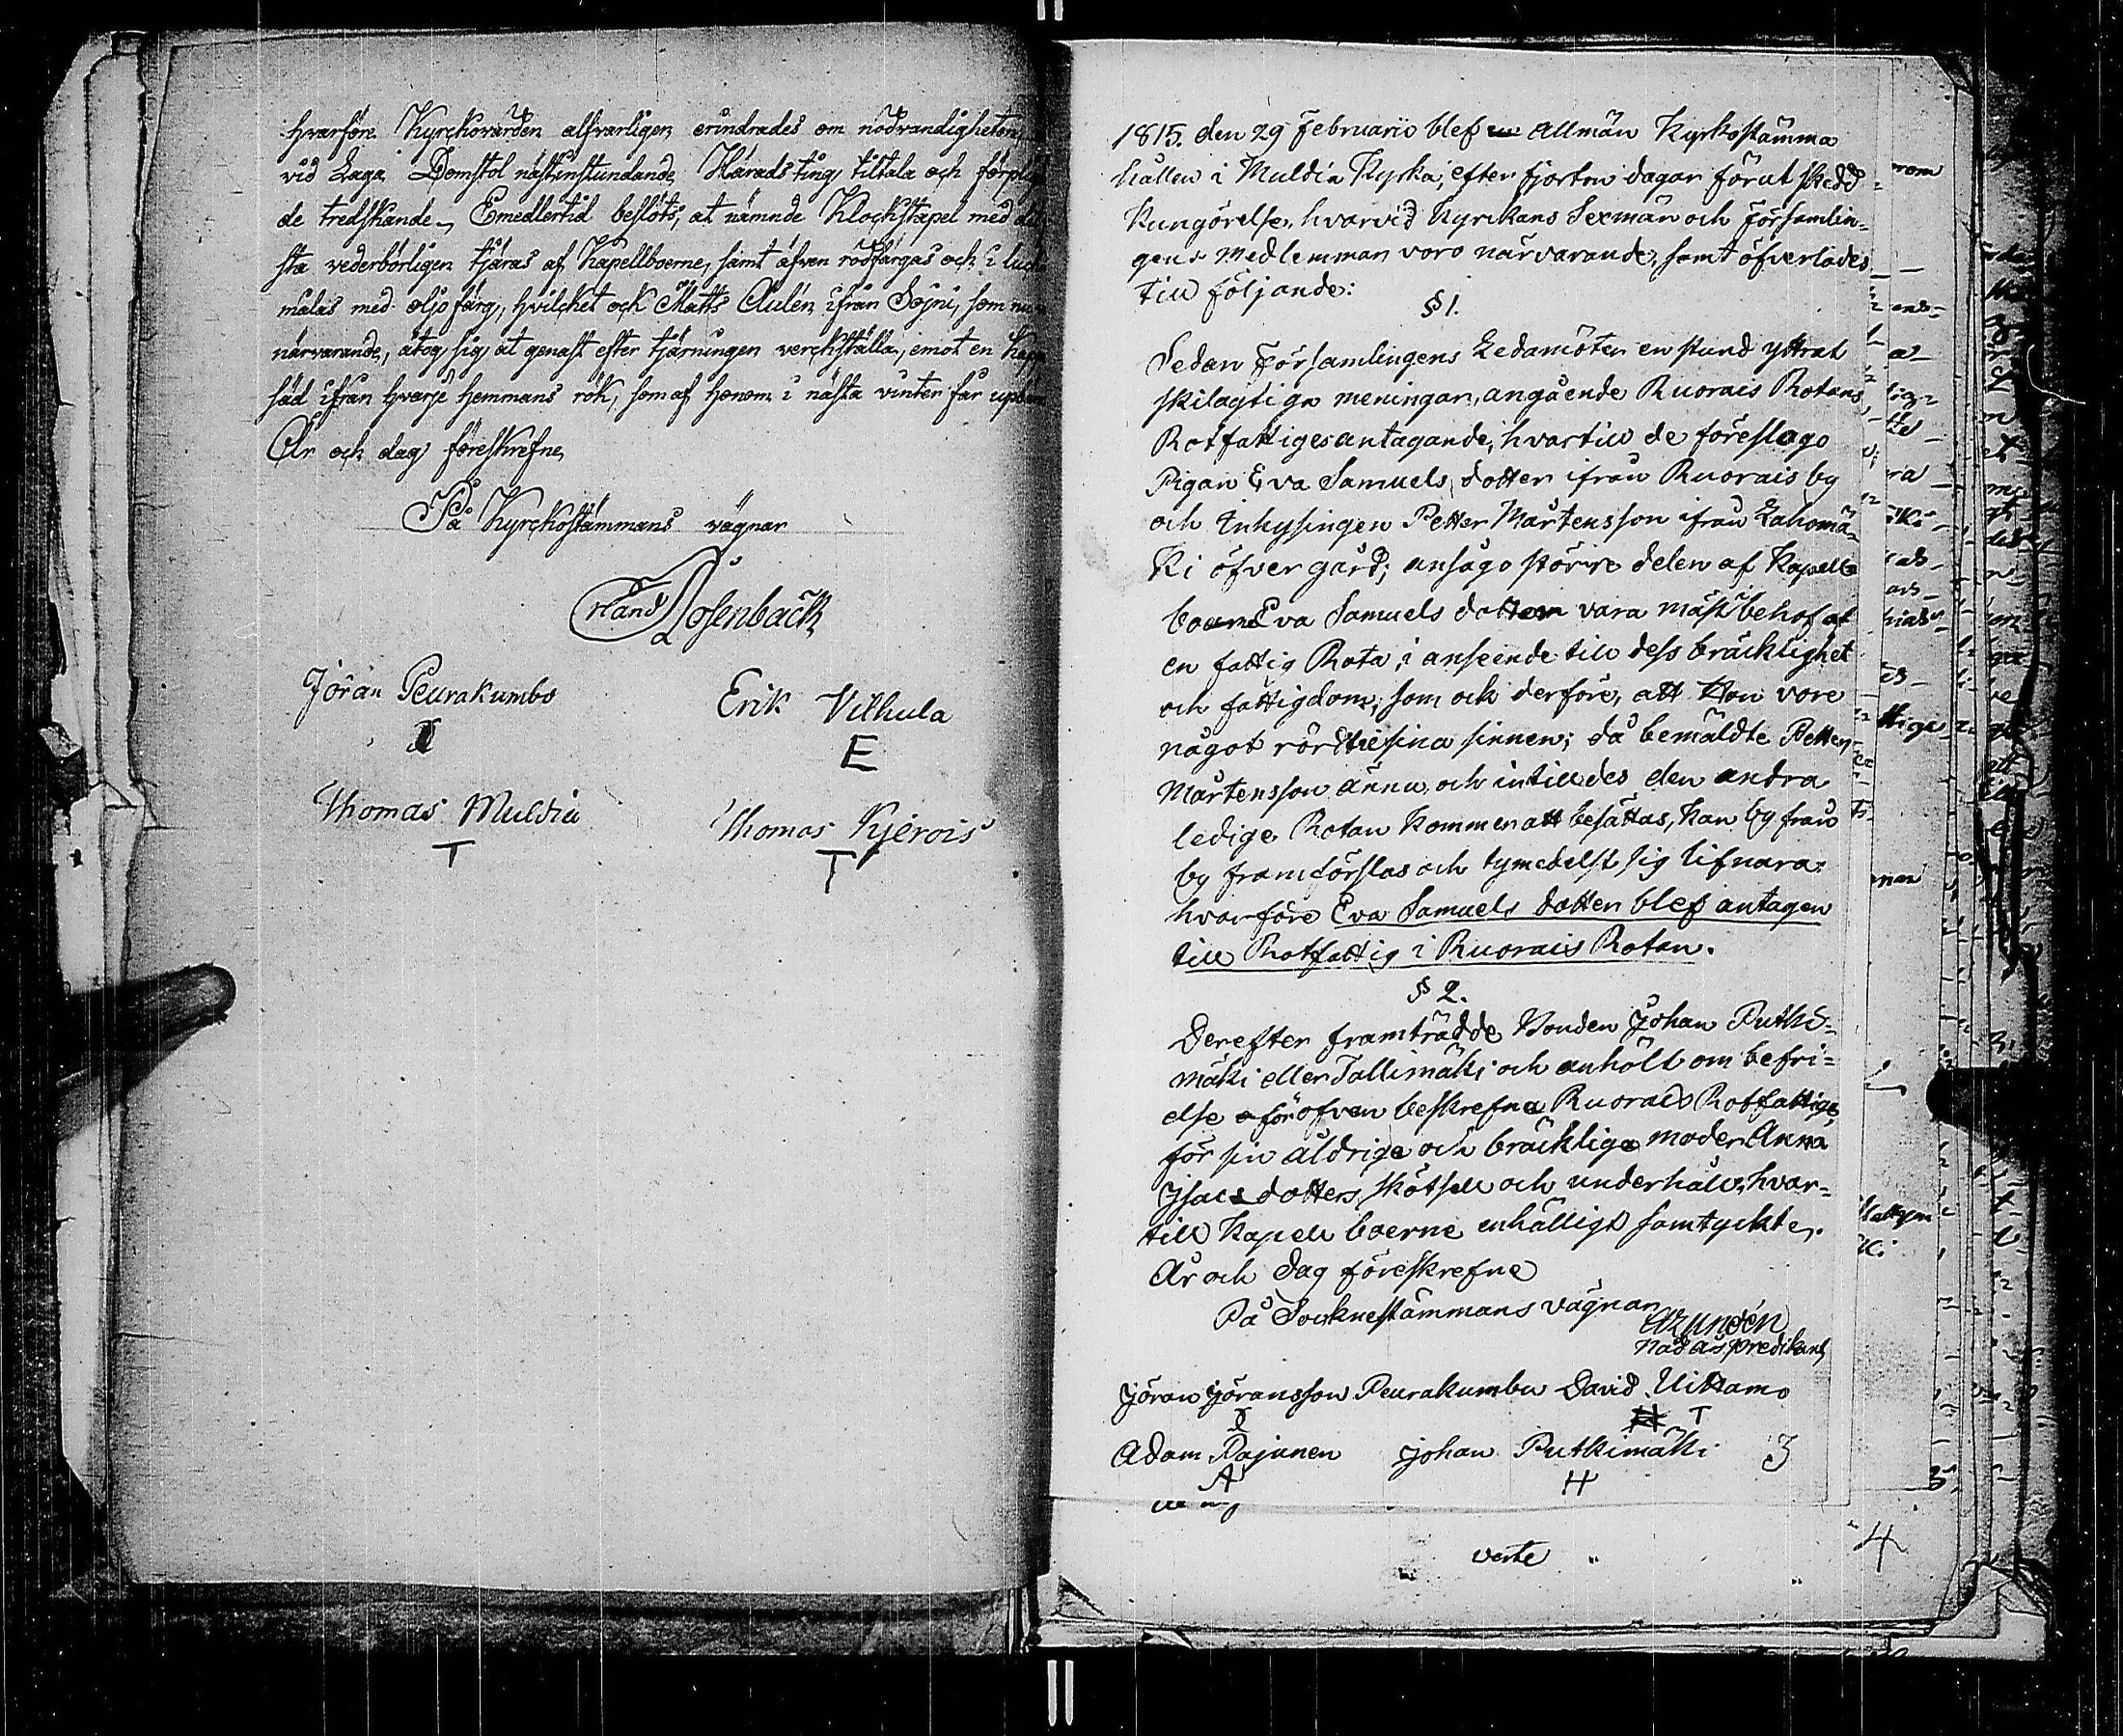 hvarföre Kyrckovärden alfvarligen erindrades om nödvändigheten,
vid Laga Domstol nästinstundande Härads ting tiltala och
de tredskande. Emedlertid beslöts, at nämnde Klockstapel med
sta vederbörligen tjäras af Kapellboerne, samt äfven rödfärgas och i
målas med oljofärg, hvilcket ock Matts Aulén ifrån Sojni, som
närvarande, åtog sig at genast efter tjärningen verckställa, emot en
säd ifrån hvarje hemmans rök, som af honom i nästa vinter får
År och dag föreskrefne,
På Kyrckostämmans vägnar
Rosenback
Jöran Peurakumbo
Erik Vilhula
E
Thomas Muldia
Thomas Kjerois
T
T
1815. den 29 Februarii blef Allmän Kyrkostämma
hållen i Muldia Kyrka, efter fjorton dagar förut skedd
Kungörelse, hvarvid Kyrckans Sexmän och Församlin-
gens medlemmar voro närvarande, samt öfverlades
till följande:
§ 1.
Sedan Församlingens Ledamöter en stund yttrat
skilagtiga meningar, angående Ruorais Rotans,
Rotfattiges antagande, hvartill de föreslogo
Pigan Eva Samuels dotter ifrån Ruorais by
och Inhysingen Petter Mårtensson ifrån Lahomä-
ki öfver gård; ansågo större delen af Kapell
boerne Eva Samuels dotter vara mäst behof af
en fattig Rota, i anseende till dess bräcklighet
och fattigdom, som ock derföre, att Hon vore
något rörd till sina sinnen; då bemäldte Petter
Mårtensson ännu, och intilldes den andra
ledige Rotan kommer att besättas, kan by från
by framförslas och lymedelst sig lifnära:
hvarföre Eva Samuels dotter blef antagen
till Rotfattig i Ruorais Rotan.
§ 2.
Derefter framträdde Bonden Johan Putki-
mäki eller Tallimäki och anhölt om befri-
else för ofvan beskrefna Ruorais Rotfattige,
för sin åldriga och bräckliga moder Anna
Jsacs dotters skötsell och underhåll, hvar-
till Kapell boerne enhälligt samtyckte.
År och dag föreskrefne
På Socknestämmans vägnar
Nådårs predikant
Jöran Jöransson Peurakumbu David Uittamo
T
Adam Pajunen Johan Putkimäki
A
H
verte
4